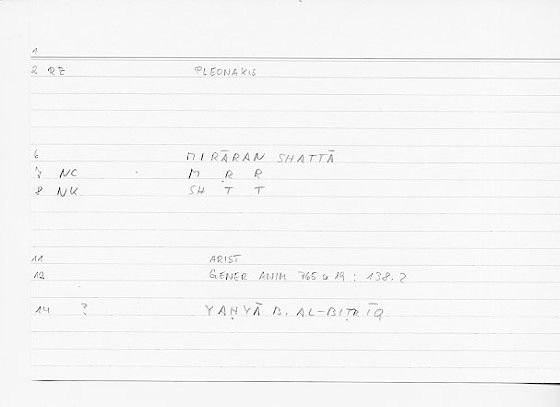 1
2 RZ PLEONAKIS
6 MIRĀRAN SHATTĀ
7 NC M R R
8 NK SH T T
11 ARIST
12 GENER ANIM 765 a 19 : 138.2
14 ? YAḤYĀ B. AL-BIṬRĪQ